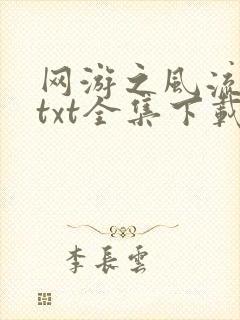 网游之风流
txt全集下載
李長雲